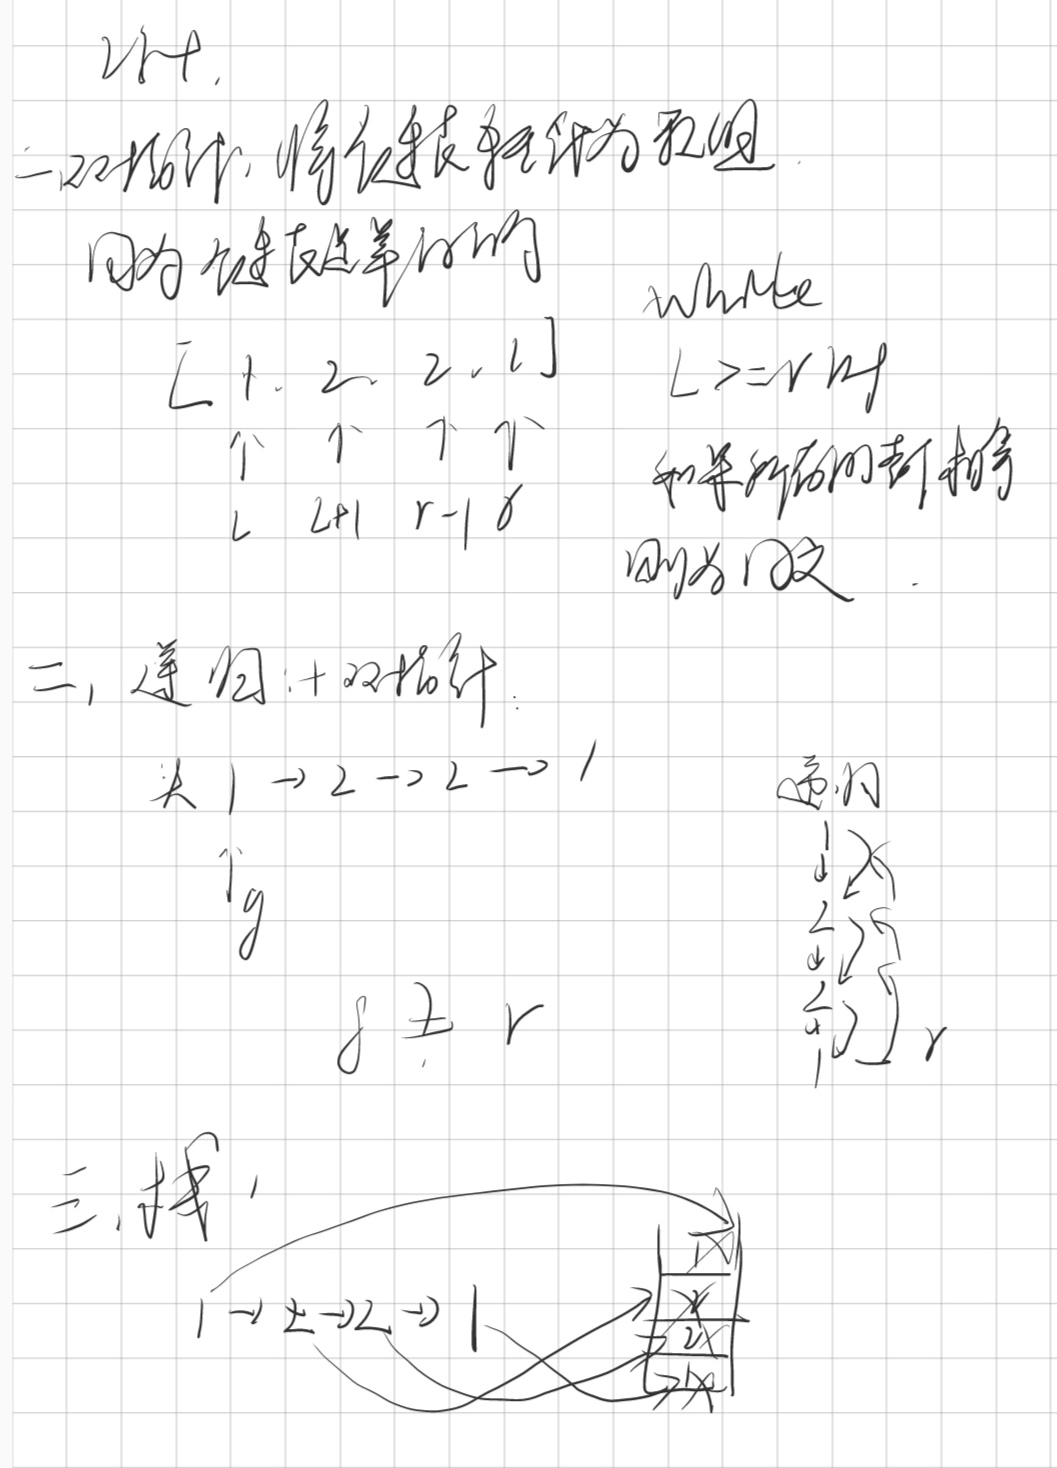 一、双指针,将链表转化为数组
因为链表是单向的
[ 1. 2. 2. 1 ]
↑ ↑ ↑ ↑
L L+1 r-1 r
while
L >= r 时
如果所有的都相等
则为回文.
二、递归:+双指针:
头 1 → 2 → 2 → 1
↑
g
递归
1
↓
2
↓
2
↓
1
r
三、栈,
1 → 2 → 2 → 1
1
2
2
1